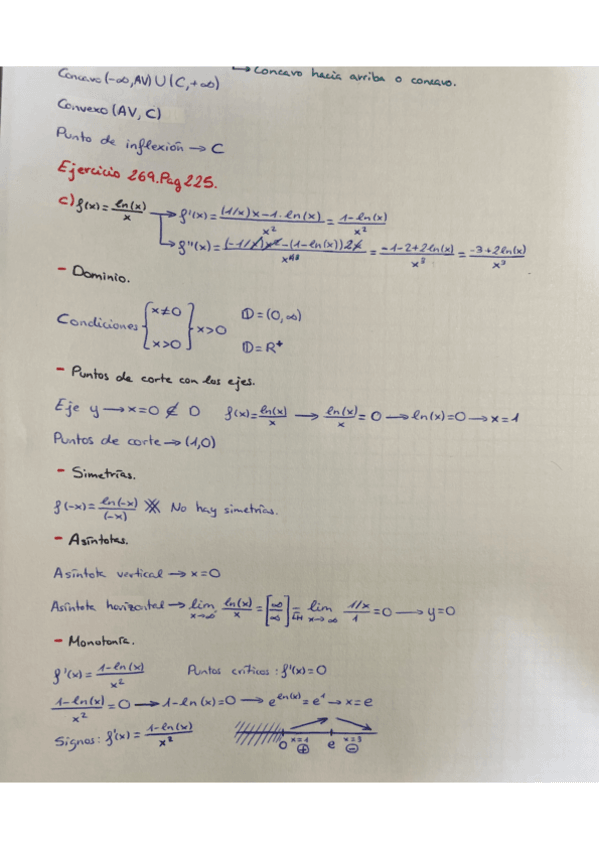 ↳ Concavo hacia arriba o concavo.
Concavo (-∞, AV) U (C, +∞)
Convexo (AV, C)
Punto de inflexión → C
Ejercicio 269. Pag 225.
c) f(x) = ln(x)/x → f'(x) = ((1/x)x - 1·ln(x))/x² = (1-ln(x))/x²
↳ f''(x) = ((-1/x)x² - (1-ln(x))2x)/x⁴ = (-1-2+2ln(x))/x³ = (-3+2ln(x))/x³
- Dominio.
Condiciones { x≠0 x>0 } x>0 D = (0, ∞) D = R⁺
- Puntos de corte con los ejes.
Eje y → x=0 ∉ D f(x) = ln(x)/x → ln(x)/x = 0 → ln(x)=0 → x=1
Puntos de corte → (1,0)
- Simetrías.
f(-x) = ln(-x)/(-x) No hay simetrías.
- Asíntotas.
Asíntota vertical → x=0
Asíntota horizontal → lim x→∞ ln(x)/x = [∞/∞] = L'H lim x→∞ (1/x)/1 = 0 → y=0
- Monotonía.
f'(x) = (1-ln(x))/x² Puntos críticos: f'(x)=0
(1-ln(x))/x² = 0 → 1-ln(x)=0 → e^ln(x) = e¹ → x=e
Signos: f'(x) = (1-ln(x))/x² 0 x=1 ⊕ e x=3 ⊖